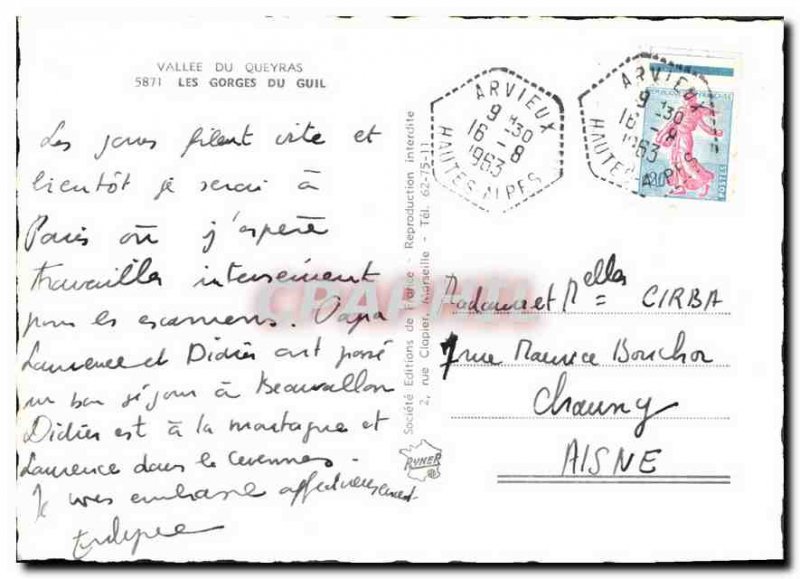 VALLEE DU QUEYRAS
5871 LES GORGES DU GUIL
Les jours filent vite et
bientôt je serai à
Paris où j'espère
travailler intensément
pour les examens. Papa
Laurence et Didier ont passé
un bon séjour à Beauvallon
Didier est à la montagne et
Laurence dans les Cevennes.
Je vous embrasse affectueusement
Société Editions de France - Reproduction interdite
2, rue Clapier, Marseille - Tél. 62-75-11
RYNER
ARVIEUX
9 H 30
16 - 8
1963
HAUTES ALPES
ARVIEUX
9 H 30
16 - 8
1963
HAUTES ALPES
REPUBLIQUE FRANÇAISE
0,20
POSTES
Madame et Melles CIRBA
7 rue Maurice Bouchor
Chauny
AISNE